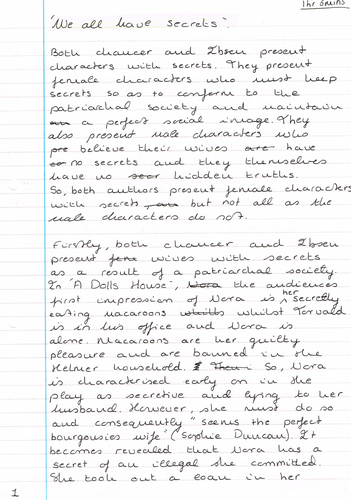 1hr 6mins
'We all have secrets'.
Both chaucer and Ibsen present
characters with secrets. They present
female characters who must keep
secrets so as to conform to the
patriarchal society and maintain
a perfect social image. They
also present male characters who
believe their wives have
no secrets and they themselves
have no hidden truths.
So, both authors present female characters
with secrets but not all as the
male characters do not.
Firstly, both chaucer and Ibsen
present wives with secrets
as a result of a patriarchal society.
In 'A Dolls House', the audiences
first impression of Nora is her secretly
eating macaroons whilst Torvald
is in his office and Nora is
alone. Macaroons are her guilty
pleasure and are banned in the
Helmer household. So, Nora
is characterised early on in the
play as secretive and lying to her
husband. However, she must do so
and consequently "seems the perfect
bourgousies wife" (Sophie Duncan). It
becomes revealed that Nora has a
secret of an illegal she committed.
She took out a loan in her
1